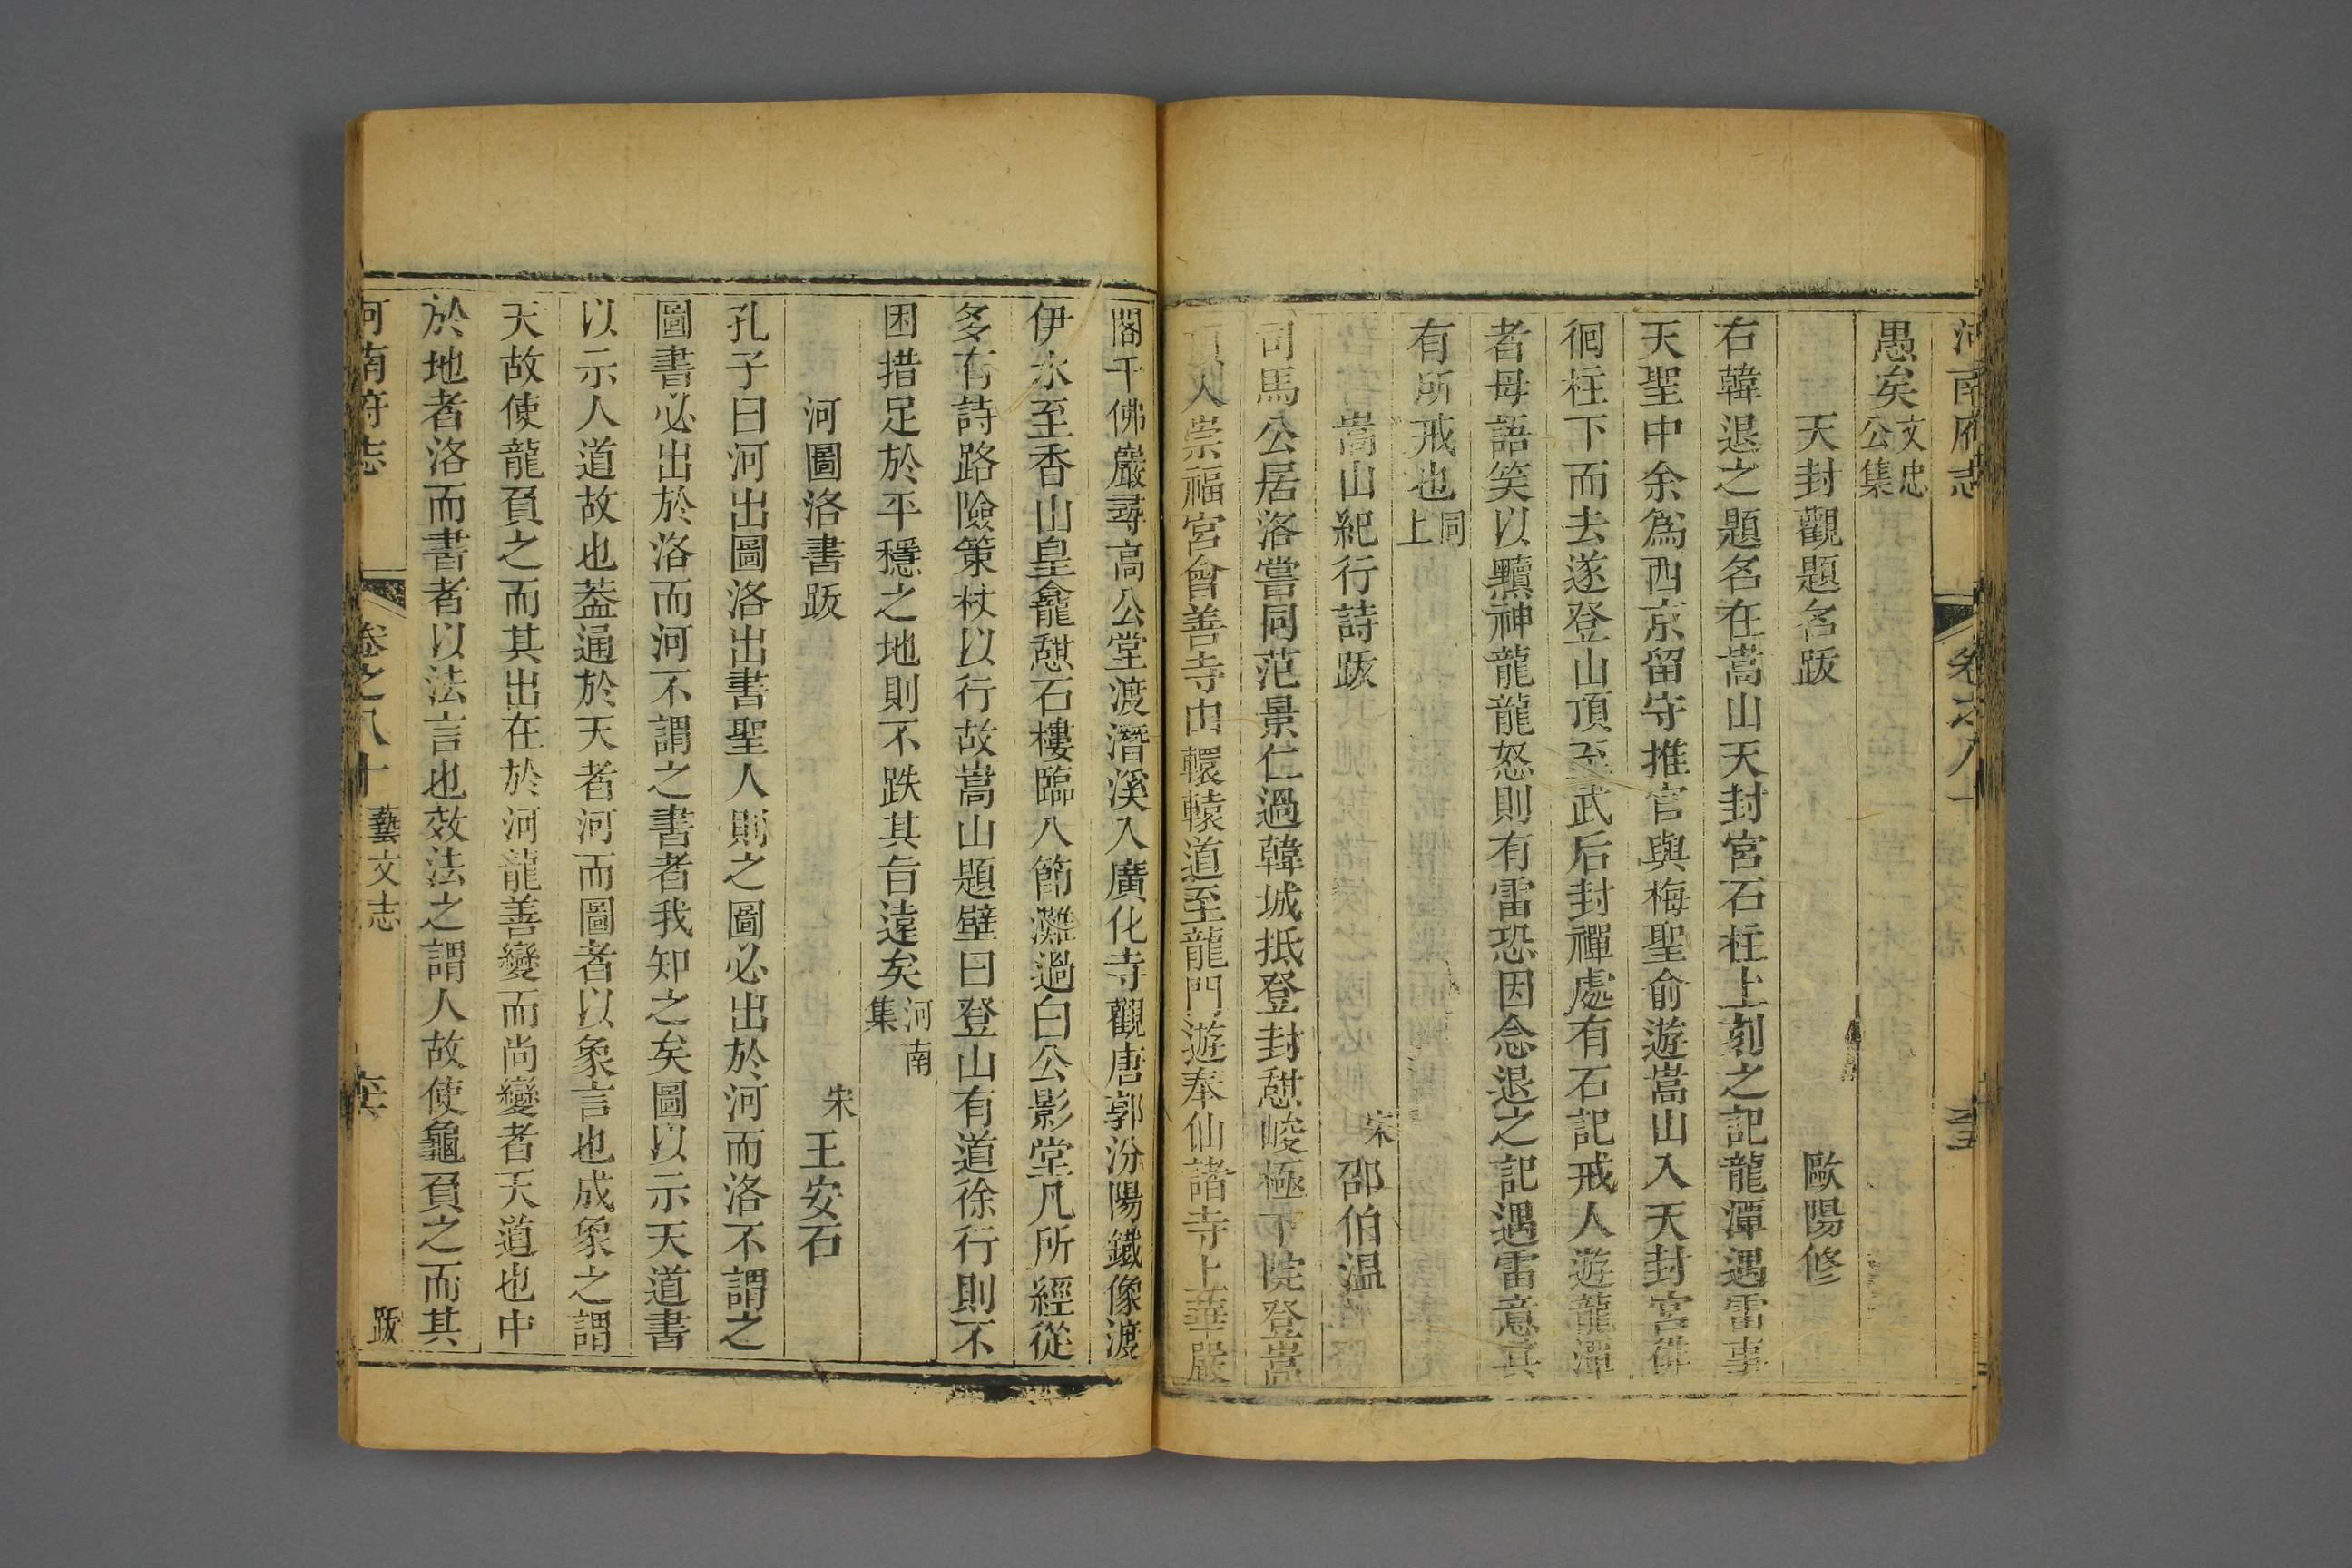 河南府志 卷之八十
愚矣文忠公集
天封觀題名跋 歐陽修
右韓退之題名在嵩山天封宮石柱上刻之記龍潭遇雷事
天聖中余爲西京留守推官與梅聖俞遊嵩山入天封宮徘
徊柱下而去遂登山頂至武后封禪處有石記戒人遊龍潭
者毋語笑以黷神龍龍怒則有雷恐因念退之記遇雷意其
有所戒也同上
嵩山紀行詩跋 宋邵伯温
司馬公居洛嘗同范景仁過韓城抵登封憩峻極下院登嵩
頂入崇福宮會善寺由轘轅道至龍門遊奉仙諸寺上華嚴
閣千佛巖尋高公堂渡潛溪入廣化寺觀唐郭汾陽鐵像渡
伊水至香山皇龕憩石樓臨八節灘過白公影堂凡所經從
多有詩路險策杖以行故嵩山題壁曰登山有道徐行則不
困措足於平穩之地則不跌其旨遠矣河南集
河圖洛書跋 宋王安石
孔子曰河出圖洛出書聖人則之圖必出於河而洛不謂之
圖書必出於洛而河不謂之書者我知之矣圖以示天道書
以示人道故也蓋通於天者河而圖者以象言也成象之謂
天故使龍負之而其出在於河龍善變而尚變者天道也中
於地者洛而書者以法言也效法之謂人故使龜負之而其
河南府志 卷之八十 藝文志 跋